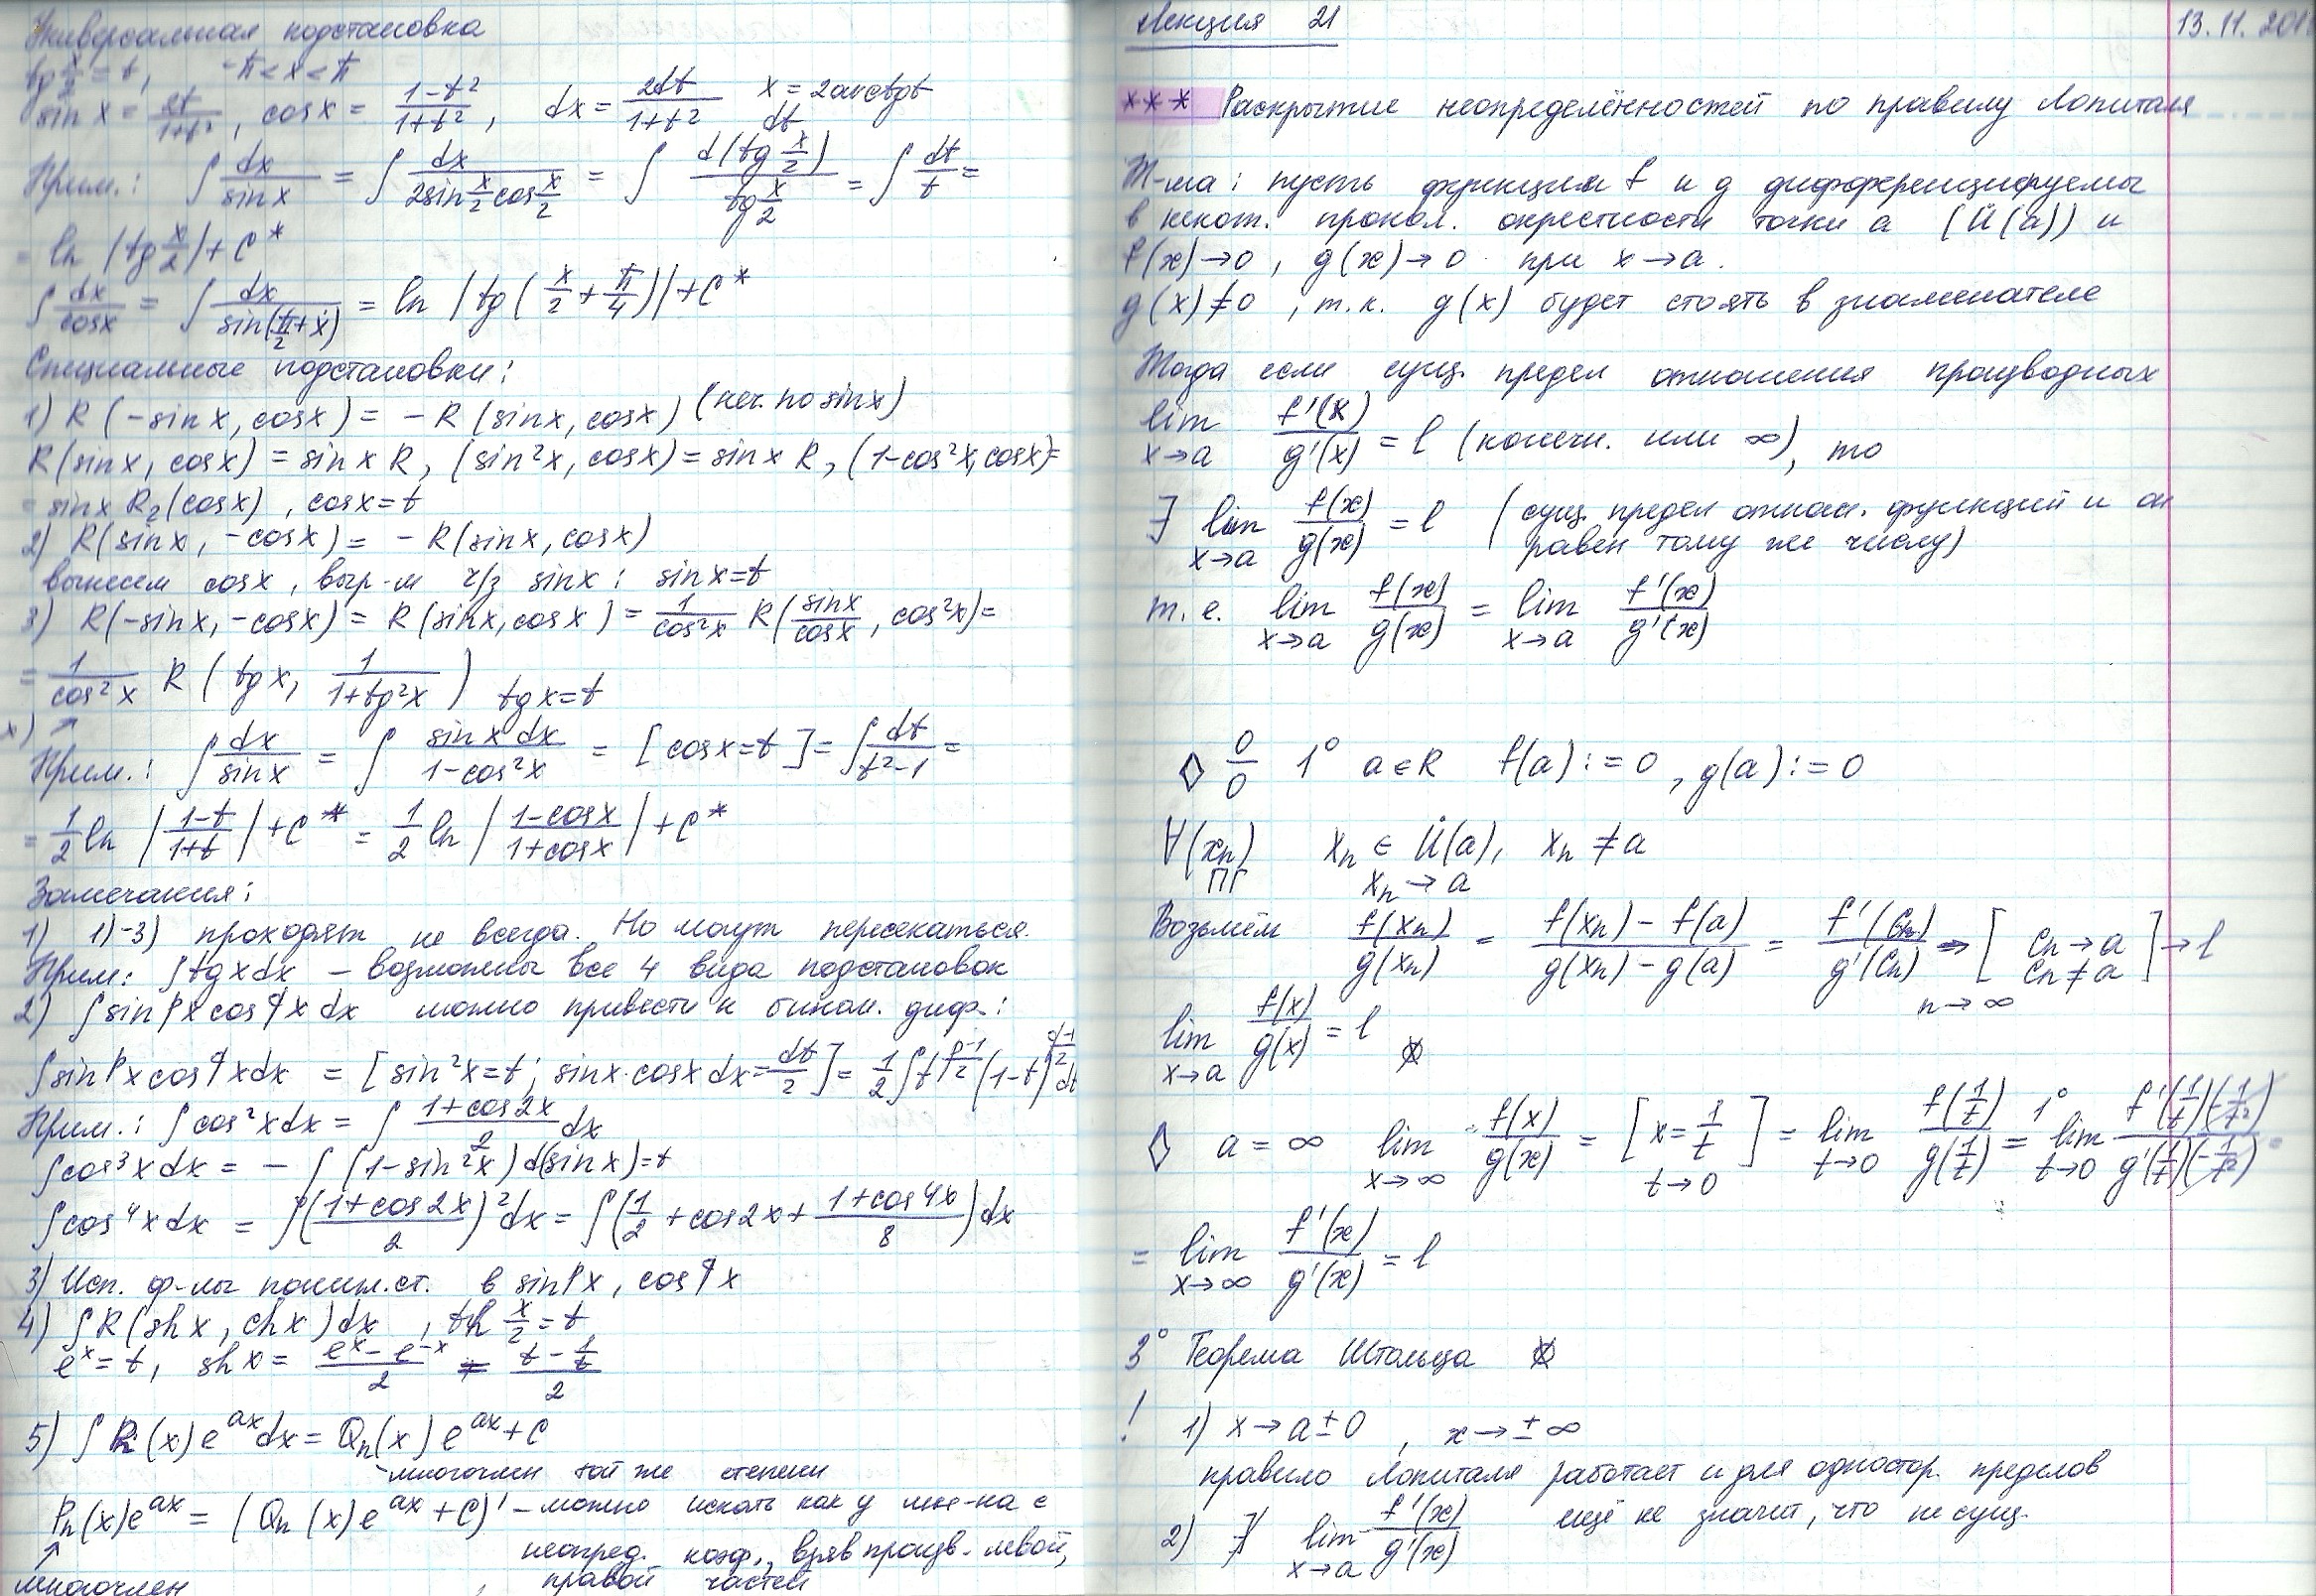 Универсальная подстановка
tg x/2 = t, -π < x < π
sin x = 2t/(1+t²), cos x = (1-t²)/(1+t²), dx = 2dt/(1+t²) x = 2arctgt
dt
Прим.: ∫ dx/sin x = ∫ dx/(2sin x/2 cos x/2) = ∫ d(tg x/2)/(tg x/2) = ∫ dt/t =
= ln |tg x/2| + C*
∫ dx/cosx = ∫ dx/sin(π/2+x) = ln |tg(x/2 + π/4)| + C*
Специальные подстановки:
1) R(-sin x, cosx) = -R(sinx, cosx) (неч. по sinx)
R(sinx, cosx) = sinx R, (sin²x, cosx) = sinx R, (1-cos²x, cosx) =
= sinx R₂(cosx), cosx = t
2) R(sinx, -cosx) = -R(sinx, cosx)
вынесем cosx, выр-м ч/з sinx: sinx=t
3) R(-sinx, -cosx) = R(sinx, cosx) = 1/cos²x R(sinx/cosx, cos²x) =
= 1/cos²x R(tgx, 1/(1+tg²x)) tgx=t
x) ↗
Прим.: ∫ dx/sinx = ∫ sinx dx/(1-cos²x) = [cosx=t] = ∫ dt/(t²-1) =
= 1/2 ln |(1-t)/(1+t)| + C* = 1/2 ln |(1-cosx)/(1+cosx)| + C*
Замечания:
1) 1)-3) проходят не всегда. Но могут пересекаться.
Прим: ∫tgxdx – возможны все 4 вида подстановок
2) ∫sin^p x cos^q x dx можно привести к бином. диф.:
∫sin^p x cos^q x dx = [sin²x=t; sinx·cosx dx = dt/2] = 1/2 ∫t^((p-1)/2) (1-t)^((q-1)/2) dt
Прим.: ∫cos²xdx = ∫ (1+cos2x)/2 dx
∫cos³xdx = -∫(1-sin²x)d(sinx)=t
∫cos⁴xdx = ∫((1+cos2x)/2)²dx = ∫(1/2 + cos2x + (1+cos4x)/8)dx
3) Исп. ф-лы пониж.ст. в sin^p x, cos^q x
4) ∫R(shx, chx)dx, th x/2 = t
e^x = t, shx = (e^x - e^-x)/2 = (t - 1/t)/2
5) ∫Pn(x)e^ax dx = Qn(x)e^ax + C
многочлен той же степени
Pn(x)e^ax = (Qn(x)e^ax + C)' – можно искать как у мн-на с
↗ неопред. коэф., взяв произв. левой,
многочлен правой частей
Лекция 21 13.11.201
*** Раскрытие неопределённостей по правилу Лопиталя
Т-ма: пусть функции f и g дифференцируемы
в некот. прокол. окрестности точки a (U̇(a)) и
f(x)→0, g(x)→0 при x→a.
g(x)≠0, т.к. g(x) будет стоять в знаменателе
Тогда если сущ. предел отношения производных
lim x→a f'(x)/g'(x) = l (конечн. или ∞), то
∃ lim x→a f(x)/g(x) = l (сущ. предел отнош. функций и он
равен тому же числу)
т.е. lim x→a f(x)/g(x) = lim x→a f'(x)/g'(x)
◊ 0/0 1° a∈R f(a):=0, g(a):=0
∀(xn) xn ∈ U̇(a), xn ≠ a
ПГ xn→a
Возьмём f(xn)/g(xn) = (f(xn) - f(a))/(g(xn) - g(a)) = f'(Cn)/g'(Cn) ⇒ [Cn→a Cn≠a] → l
n→∞
lim x→a f(x)/g(x) = l
◊ a = ∞ lim x→∞ f(x)/g(x) = [x = 1/t t→0] = lim t→0 f(1/t)/g(1/t) =1° lim t→0 f'(1/t)(-1/t²)/g'(1/t)(-1/t²) =
= lim x→∞ f'(x)/g'(x) = l
3° Теорема Штольца
! 1) x→a±0, x→±∞
правило Лопиталя работает и для одностор. пределов
2) ∄ lim x→a f'(x)/g'(x) ещё не значит, что не сущ.